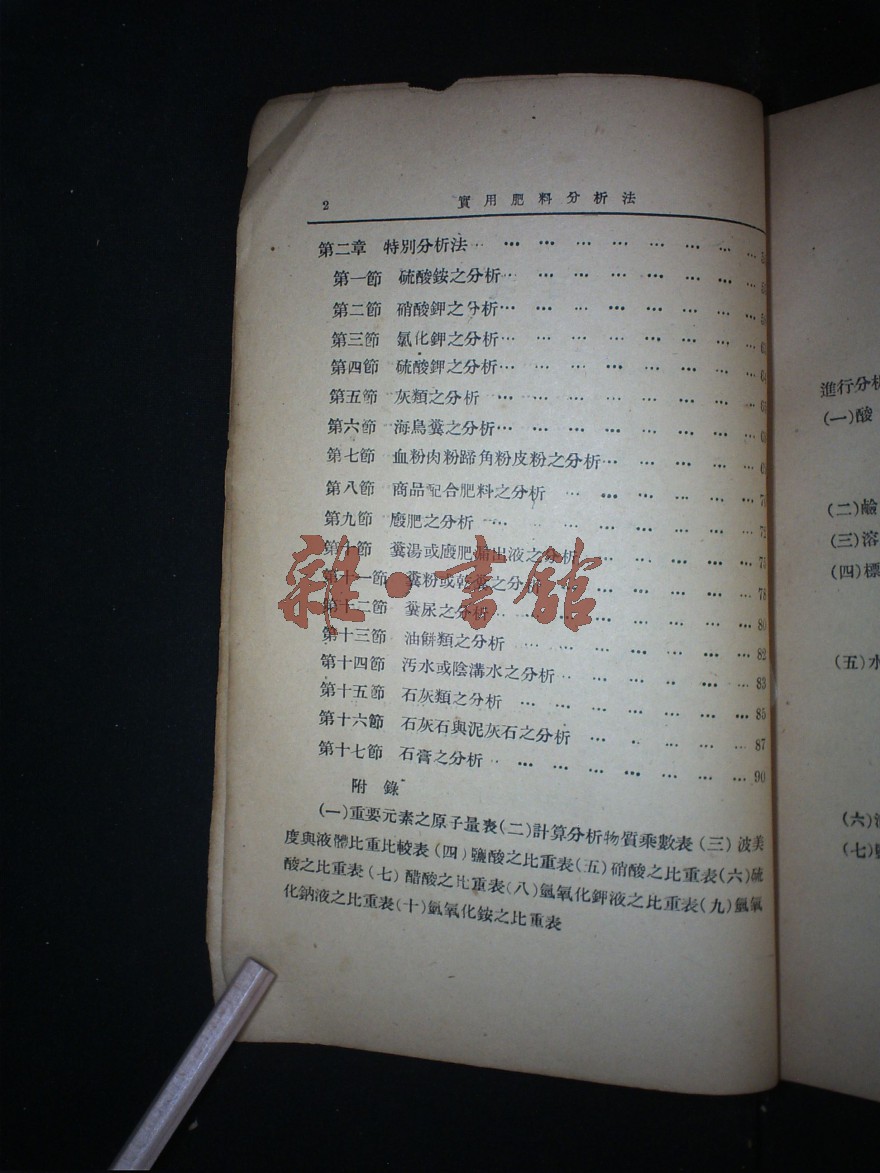 2 實用肥料分析法
第二章 特別分析法… … … … … … … …
第一節 硫酸銨之分析… … … … … … … …
第二節 硝酸鉀之分析… … … … … … … …
第三節 氯化鉀之分析… … … … … … … …
第四節 硫酸鉀之分析… … … … … … … …
第五節 灰類之分析 … … … … … … … …
第六節 海鳥糞之分析… … … … … … … …
第七節 血粉肉粉蹄角粉皮粉之分析… … … … …
第八節 商品配合肥料之分析 … … … … … …
第九節 廄肥之分析 … … … … … … … …
第十節 糞湯或廄肥漏出液之分析 … … … … …
第十一節 糞粉或乾糞之分析 … … … … … … 78
第十二節 糞尿之分析 … … … … … … … 80
第十三節 油餅類之分析 … … … … … … … 82
第十四節 汚水或陰溝水之分析… … … … … … 83
第十五節 石灰類之分析 … … … … … … … 85
第十六節 石灰石與泥灰石之分析 … … … … … 87
第十七節 石膏之分析… … … … … … … … 90
附錄
(一)重要元素之原子量表(二)計算分析物質乘數表(三)波美
度與液體比重比較表(四)鹽酸之比重表(五)硝酸之比重表(六)硫
酸之比重表(七)醋酸之比重表(八)氫氧化鉀液之比重表(九)氫氧
化鈉液之比重表(十)氫氧化銨之比重表
雜·書館
進行分析
(一)酸
(二)鹼
(三)溶
(四)標
(五)水
(六)
(七)